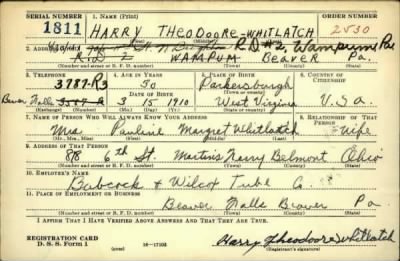 SERIAL NUMBER 1. NAME (Print) ORDER NUMBER
1811 HARRY THEODOORE-WHITLATCH 2530
2. ADDRESS (Print) R.D #2, Wampum Pa
R.D 2 WAMPUM BEAVER Pa.
(Number and street or R. F. D. number) (Town) (County) (State)
3. TELEPHONE 4. AGE IN YEARS 5. PLACE OF BIRTH 6. COUNTRY OF CITIZENSHIP
3787-R3 30 Parkersburgh
Beaver Falls DATE OF BIRTH West Virginia U.S.a.
3 15 1910
(Exchange) (Number) (Mo.) (Day) (Yr.) (State or country)
7. NAME OF PERSON WHO WILL ALWAYS KNOW YOUR ADDRESS 8. RELATIONSHIP OF THAT PERSON
Mrs Pauline Margret Whitlatch Wife
(Mr., Mrs., Miss) (First) (Middle) (Last)
9. ADDRESS OF THAT PERSON
88 6th St. Martins Ferry Belmont Ohio
(Number and street or R. F. D. number) (Town) (County) (State)
10. EMPLOYER'S NAME
Babcock & Wilcox Tube Co.
11. PLACE OF EMPLOYMENT OR BUSINESS
Beaver Falls Beaver Pa
(Number and street or R. F. D. number) (Town) (County) (State)
I AFFIRM THAT I HAVE VERIFIED ABOVE ANSWERS AND THAT THEY ARE TRUE.
REGISTRATION CARD
D. S. S. Form 1 (over) 16—17105 Harry Theodoore Whitlatch
(Registrant's signature)